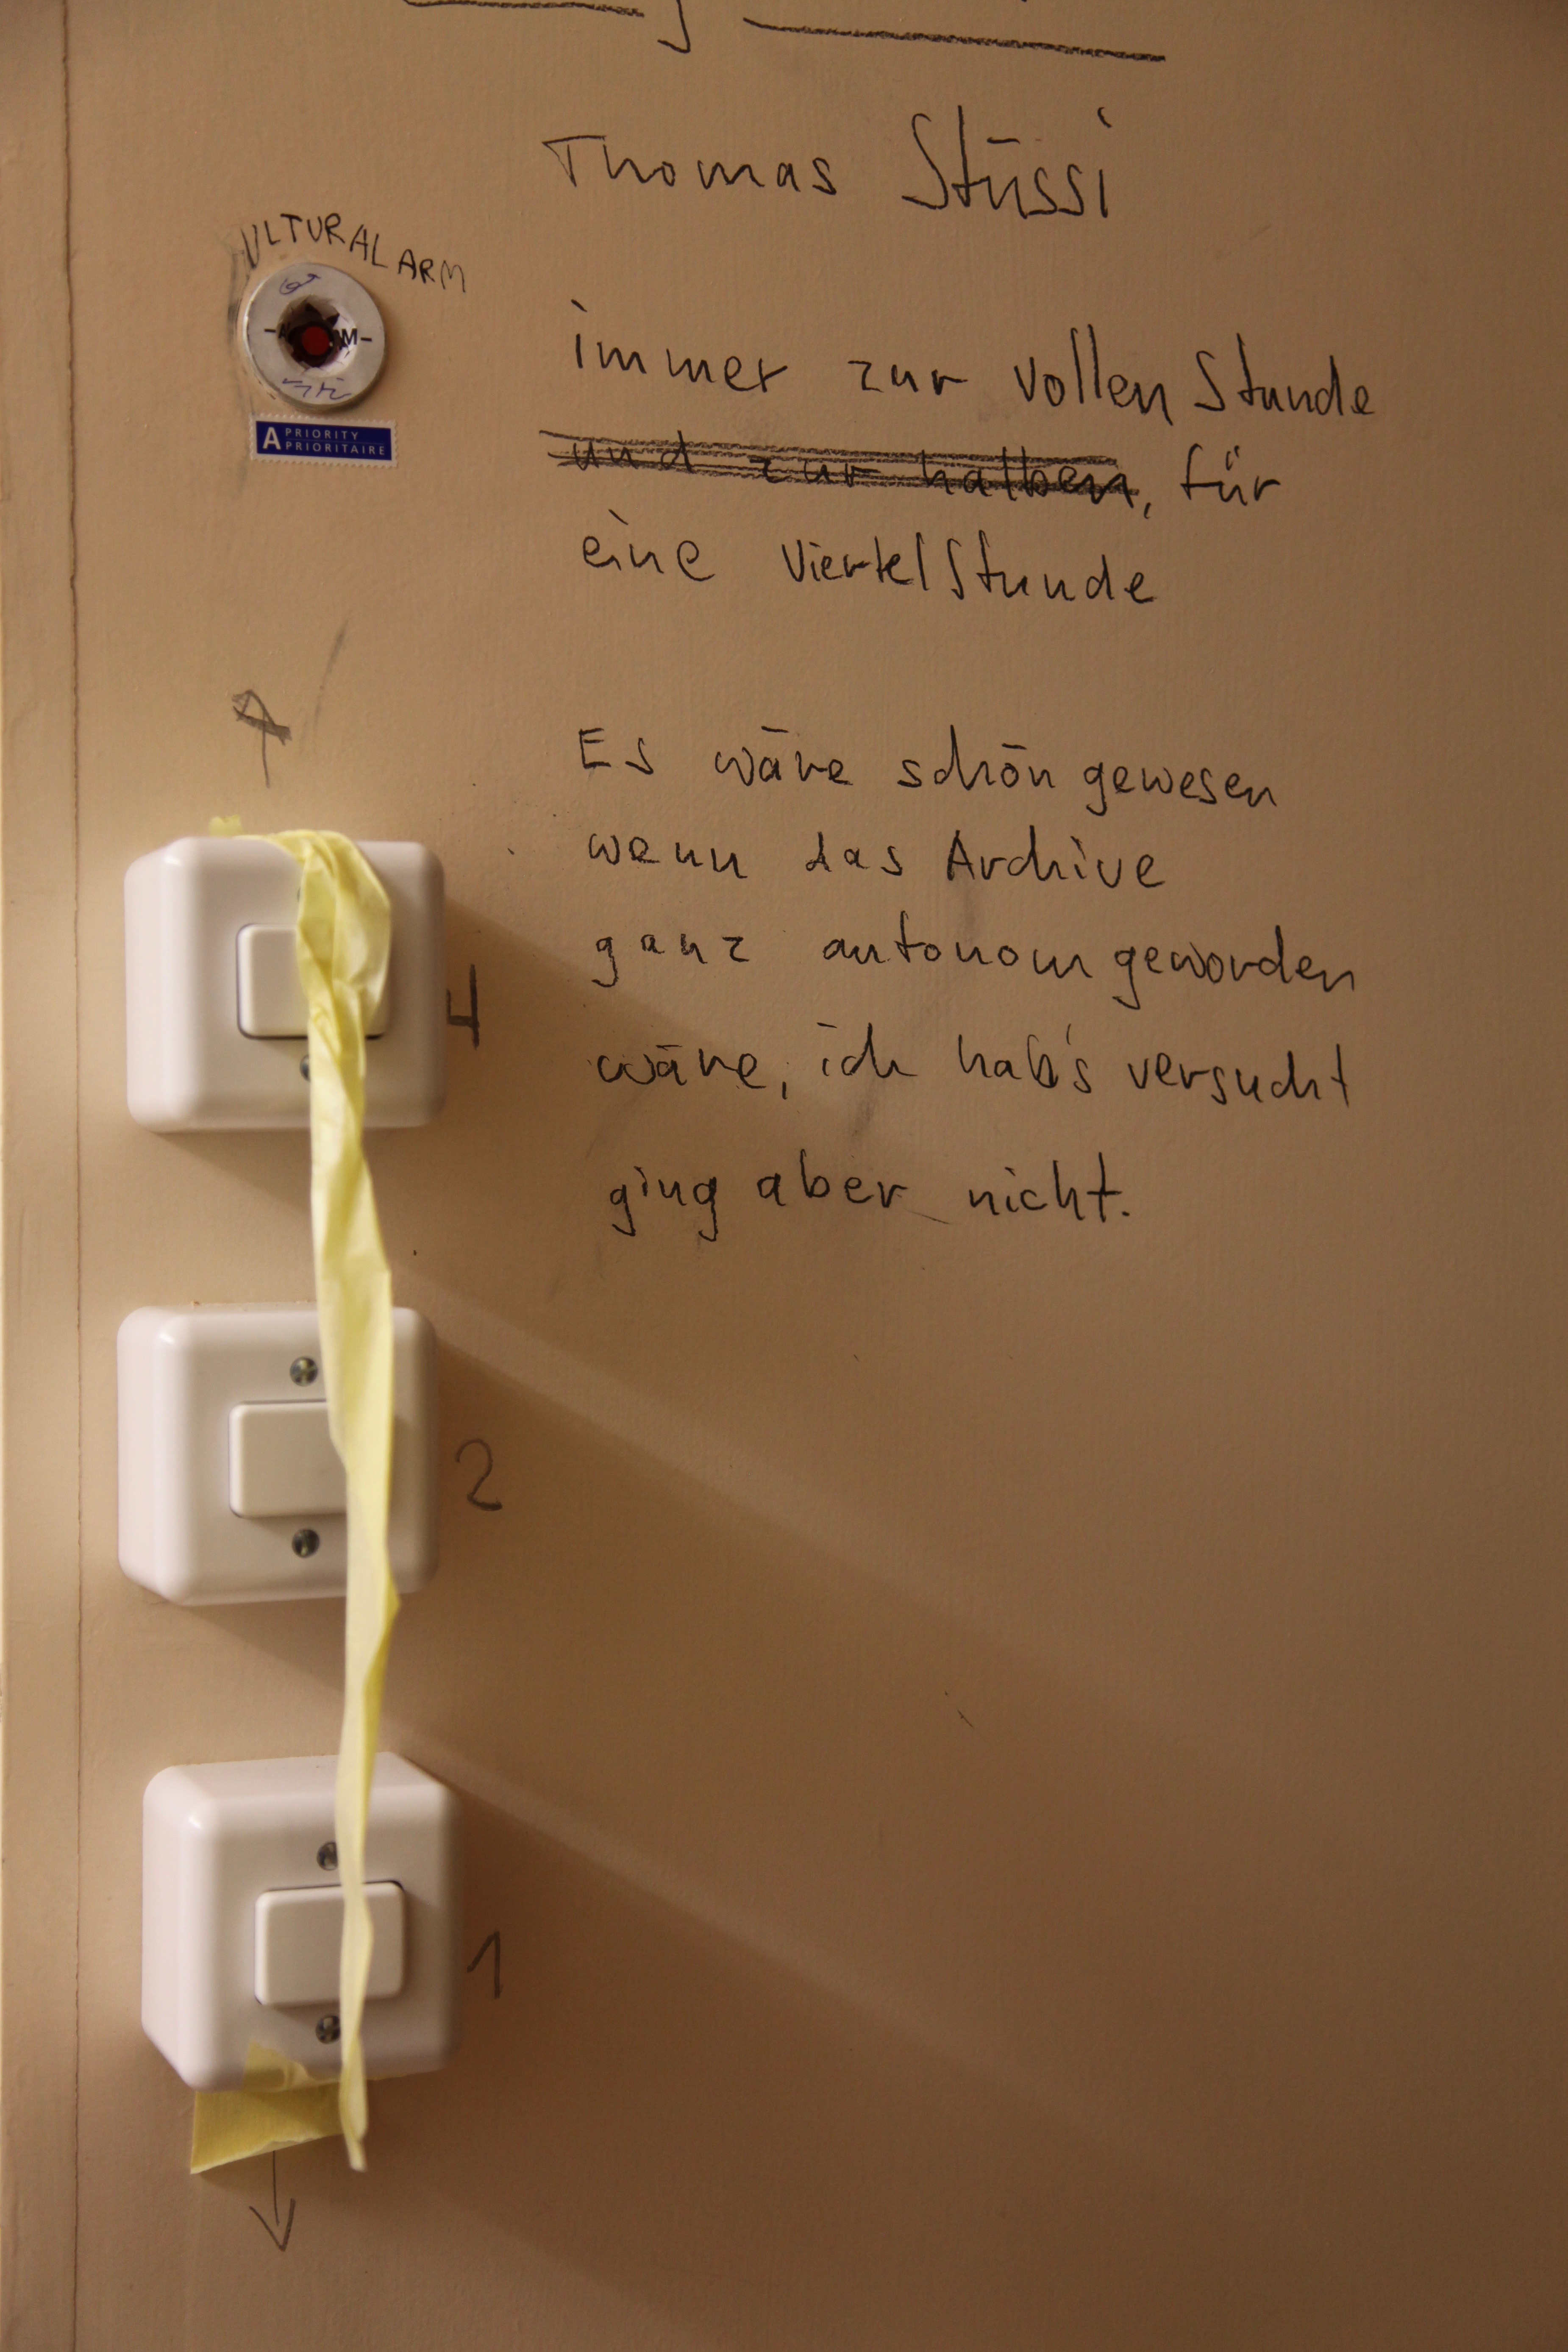 Thomas Stüssi
ULTURALARM
M
immer zur vollen Stunde
A PRIORITY
PRIORITAIRE
und zur halben, für
eine Viertelstunde
Es wäre schön gewesen
wenn das Archive
ganz autonom geworden
4
wäre, ich hab's versucht
ging aber nicht.
2
1